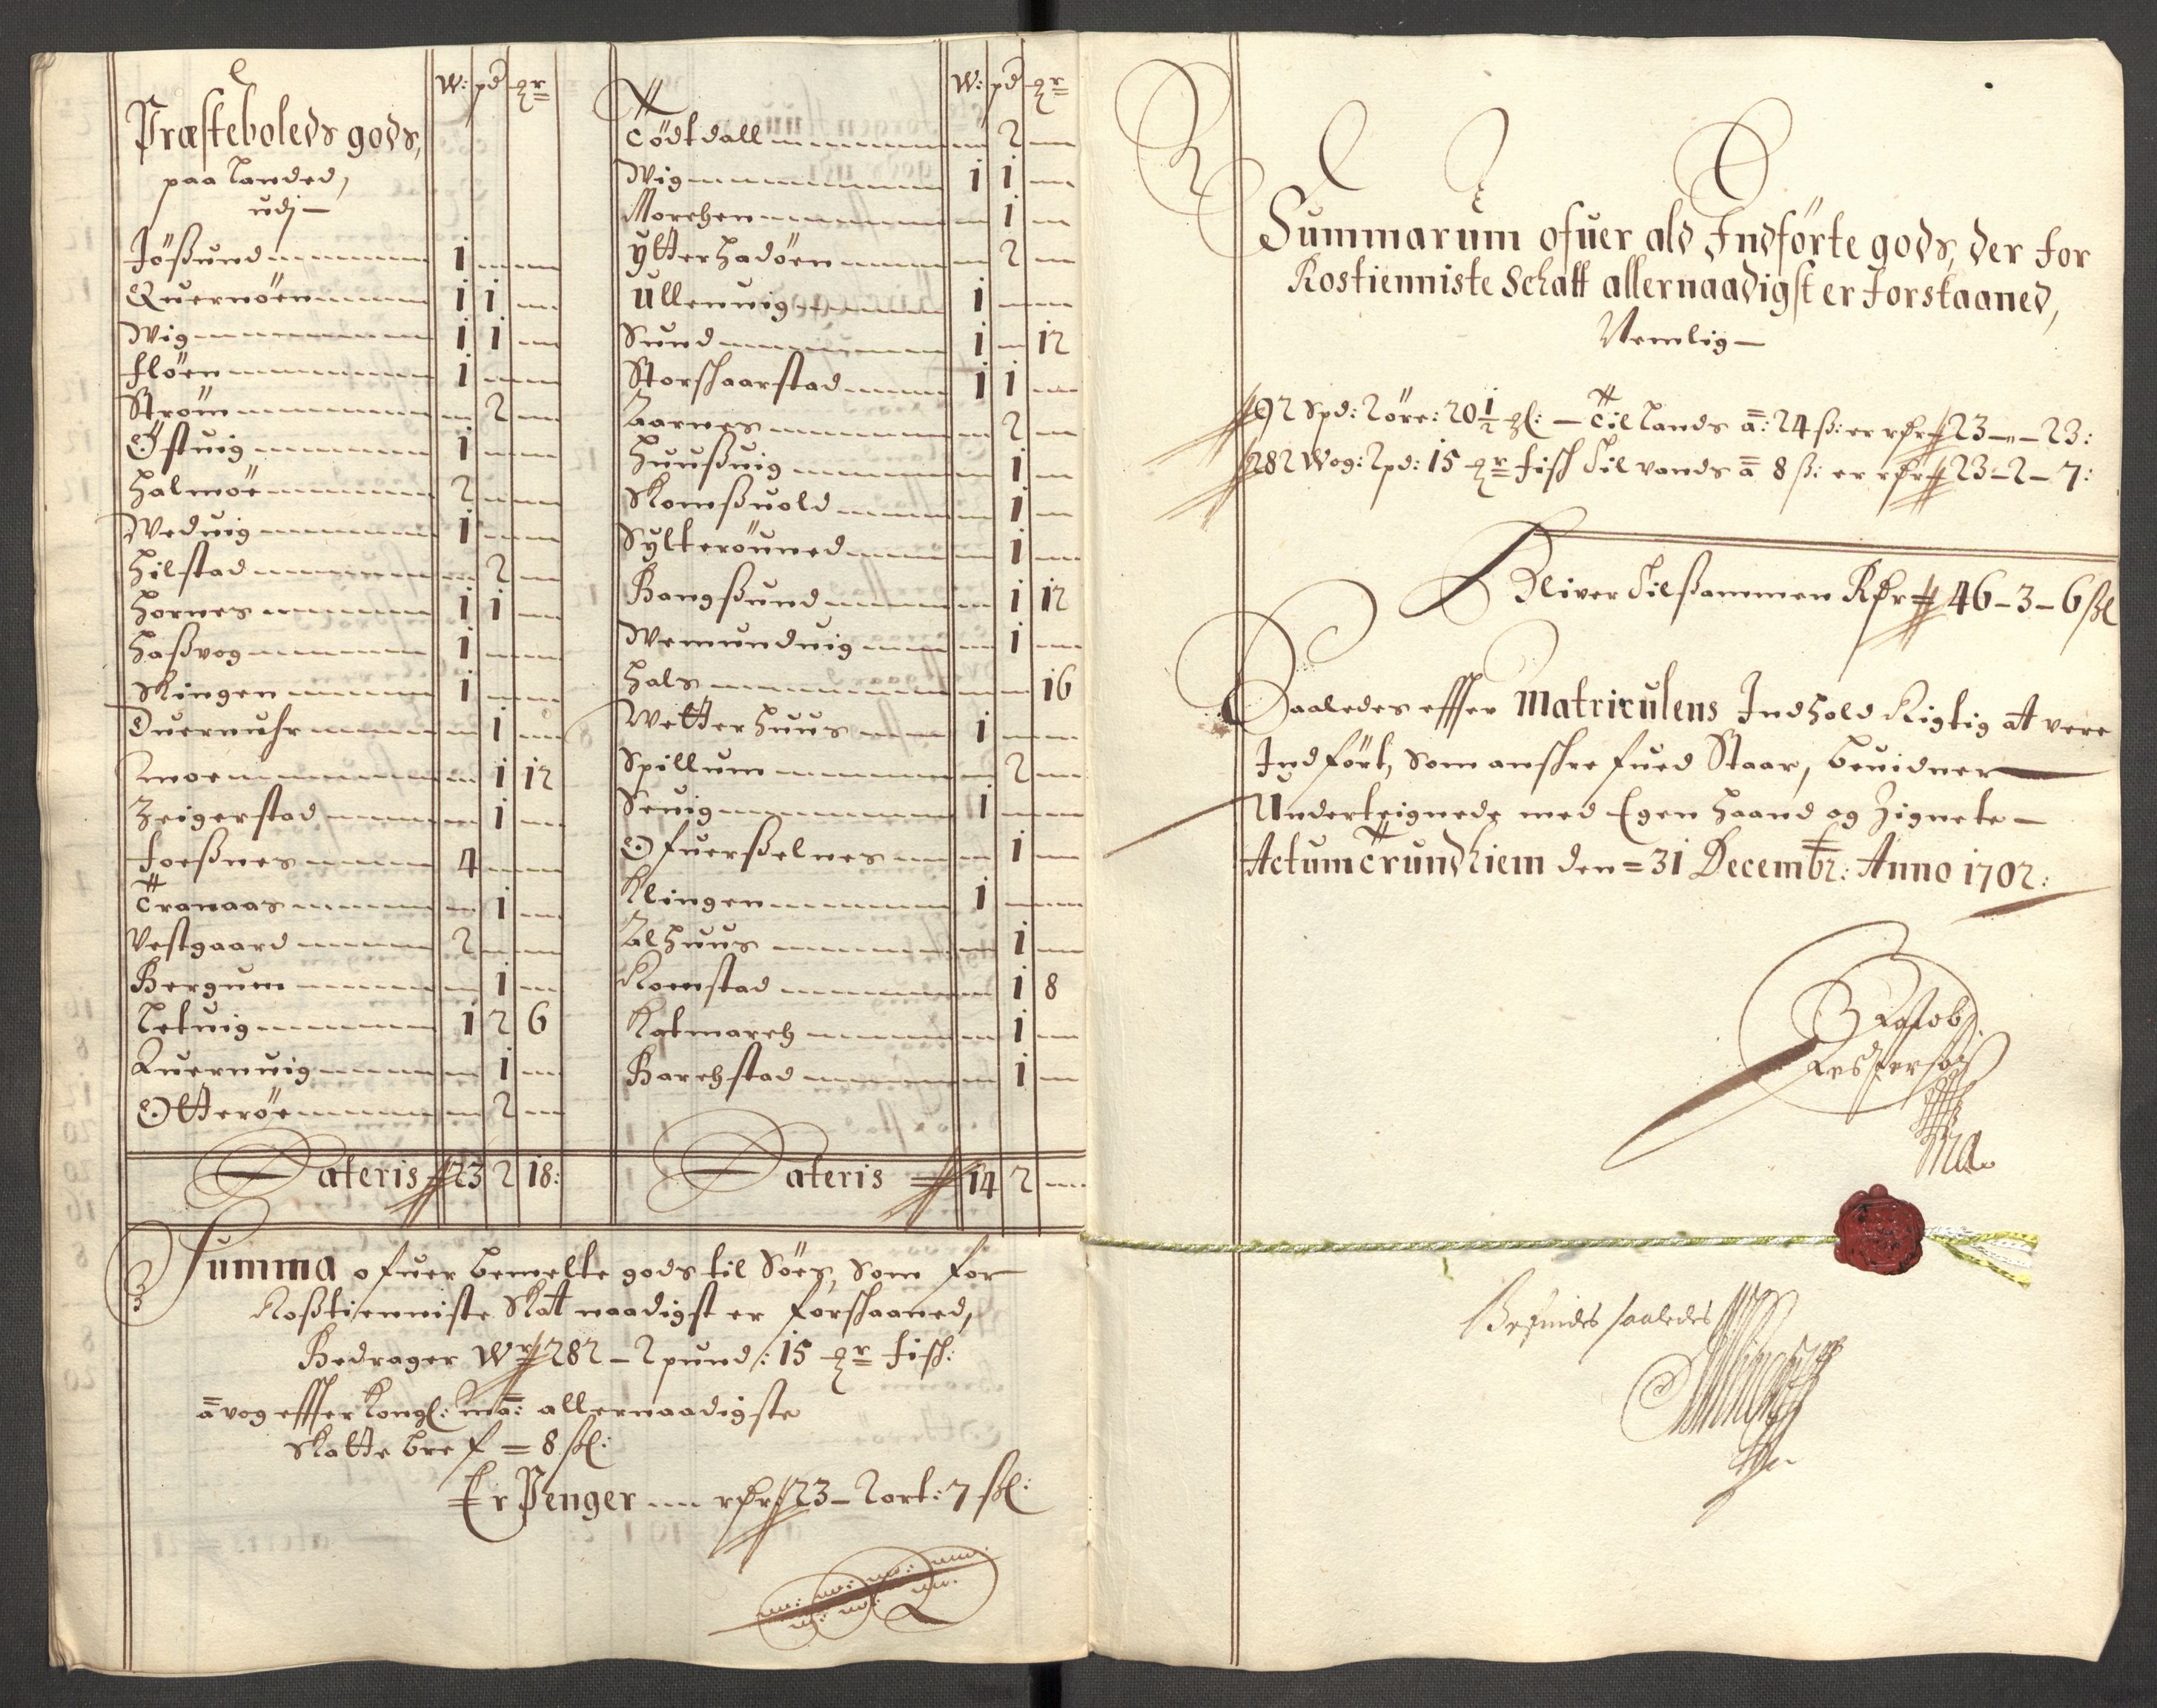 W: pd qr
Præsteboleds gods,
paa Landed,
udj —
Jößund 1
Quernöen 1 1
Wig 1 1
Flöen 1
Ström 2
Östuig 1
Halmöe 2
Weduig 1
Hilstad 2
Hornes 1 1
Haßvog 1
Skingen 1
Duernuhr 1
Moe 1 12
Zeigerstad 1
Foeßnes 4
Tranaas 1
Vestgaard 2
Bergum 1
Letuig 1 2 6
Quernuig 1
Otteröe 2
Lateris 23 2 18:
W: pd qr
Tödtdall 2
Wig 1 1
Morchen 1
Ytterhadöen 2
Ullenuig 1
Sund 1 — 12
Storskaarstad 1 1
Aarnes 2
Huußuig 1
Komßuold 1
Sylteröuned 1
Bangßund 1 12
Wemunduig 1
Hals 16
Wetterhuus 1
Spillum 2
Seuig 1
Ofuerßelnes 1
Klingen 1
Alhuus 1
Romstad 1 8
Katmarch 1
Barchstad 1
Lateris 14 2
Summa ofuer bemelte gods til Söes, Som for
Roßtienniste Skat naadigst er forskaaned,
Bedrager Wr 282 – 2 pund: 15 qr Fisk:
a vog effter Kongl: ma: allernaadigste
Skattebref = 8 skl:
Er Penger — rdr 23 – 2 ort: 7 skl:
Summarum ofuer ald Indförte gods, der for
Rostienniste Schatt allernaadigst er Forskaaned,
Nemlig —
92 Spd: 2 öre: 20 1/2 — Til Lands a: 24 ß: er rdr 23 – „ – 23:
282 Wog: 2 pd: 15 qr fisk Til vands a 8 ß: er rdr 23 – 2 – 7:
Bliver Tilsammen Rdr 46 – 3 – 6 skl
Saaledes effter Matriculens Indhold Rigtig at vere
Indfört, Som anskrefued Staar, beuidner
Underteignede med Egen Haand og Zignete —
Actum Trundhiem den = 31 Decembr: Anno 1702:
Befindes saaledes